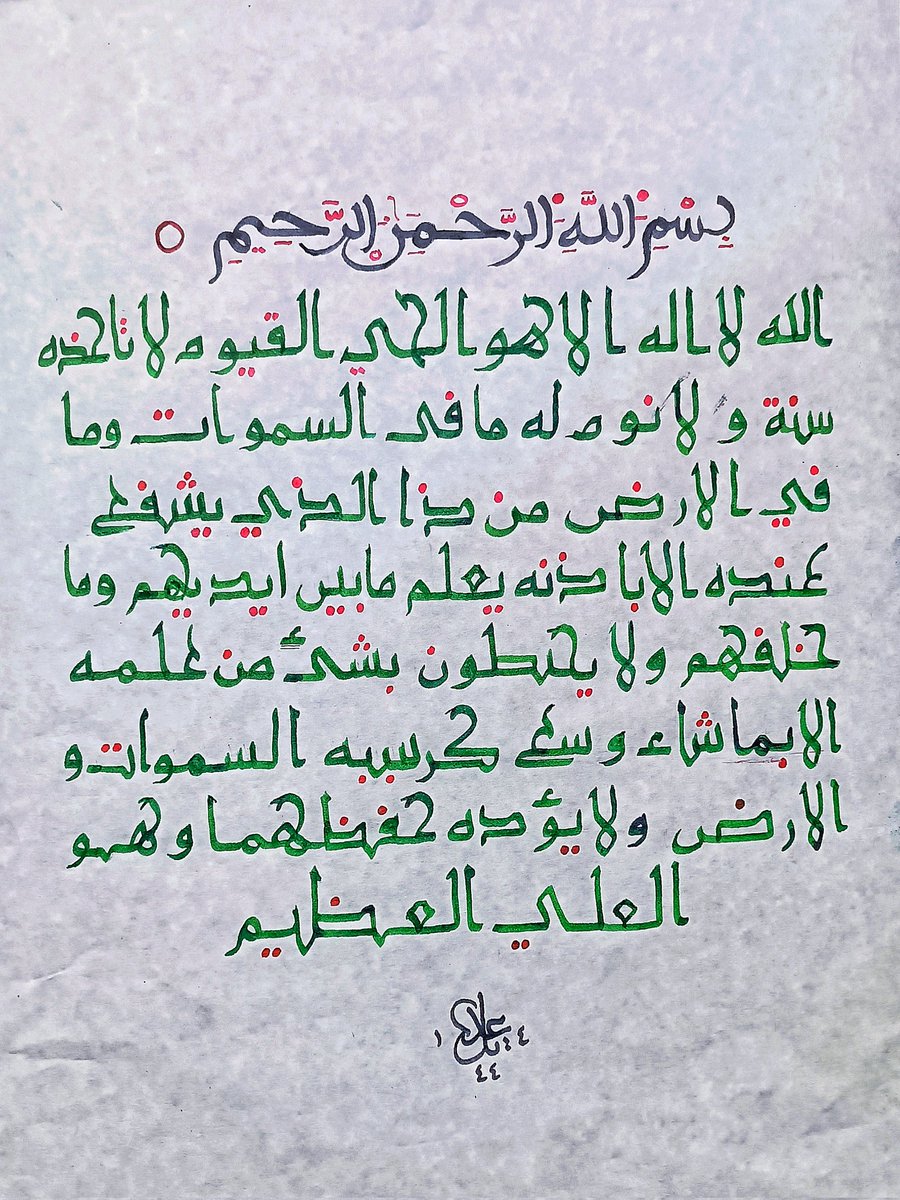 بِسْمِ اللَّهِ الرَّحْمَنِ الرَّحِيمِ
الله لا اله الا هو الحي القيوم لا تاخذه
سنة و لا نوم له ما في السموات وما
في الارض من ذا الذي يشفع
عنده الا باذنه يعلم ما بين ايديهم وما
خلفهم ولا يحيطون بشئ من علمه
الا بما شاء وسع كرسيه السموات و
الارض ولا يؤده حفظهما وهو
العلي العظيم
٤٤